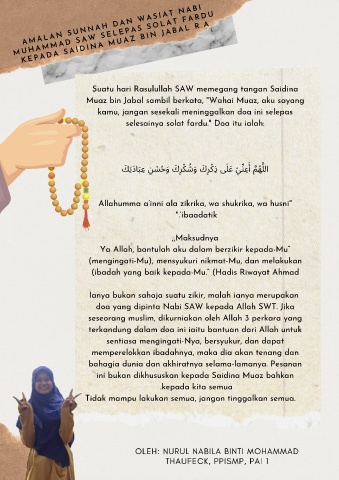 AMALAN SUNNAH DAN WASIAT NABI
MUHAMMAD SAW SELEPAS SOLAT FARDU
KEPADA SAIDINA MUAZ BIN JABAL R.A
Suatu hari Rasulullah SAW memegang tangan Saidina
Muaz bin Jabal sambil berkata, "Wahai Muaz, aku sayang
kamu, jangan sesekali meninggalkan doa ini selepas
selesainya solat fardu." Doa itu ialah:
اللَّهُمَّ أَعِنِّيْ عَلَى ذِكْرِكَ وَشُكْرِكَ وَحُسْنِ عِبَادَتِكَ
Allahumma a'inni ala zikrika, wa shukrika, wa husni"
".'ibaadatik
,,Maksudnya
Ya Allah, bantulah aku dalam berzikir kepada-Mu"
(mengingati-Mu), mensyukuri nikmat-Mu, dan melakukan
(ibadah yang baik kepada-Mu." (Hadis Riwayat Ahmad
Ianya bukan sahaja suatu zikir, malah ianya merupakan
doa yang dipinta Nabi SAW kepada Allah SWT. Jika
seseorang muslim, dikurniakan oleh Allah 3 perkara yang
terkandung dalam doa ini iaitu bantuan dari Allah untuk
sentiasa mengingati-Nya, bersyukur, dan dapat
memperelokkan ibadahnya, maka dia akan tenang dan
bahagia dunia dan akhiratnya selama-lamanya. Pesanan
ini bukan dikhususkan kepada Saidina Muaz bahkan
.kepada kita semua
Tidak mampu lakukan semua, jangan tinggalkan semua.
OLEH: NURUL NABILA BINTI MOHAMMAD
THAUFECK, PPISMP, PAI 1